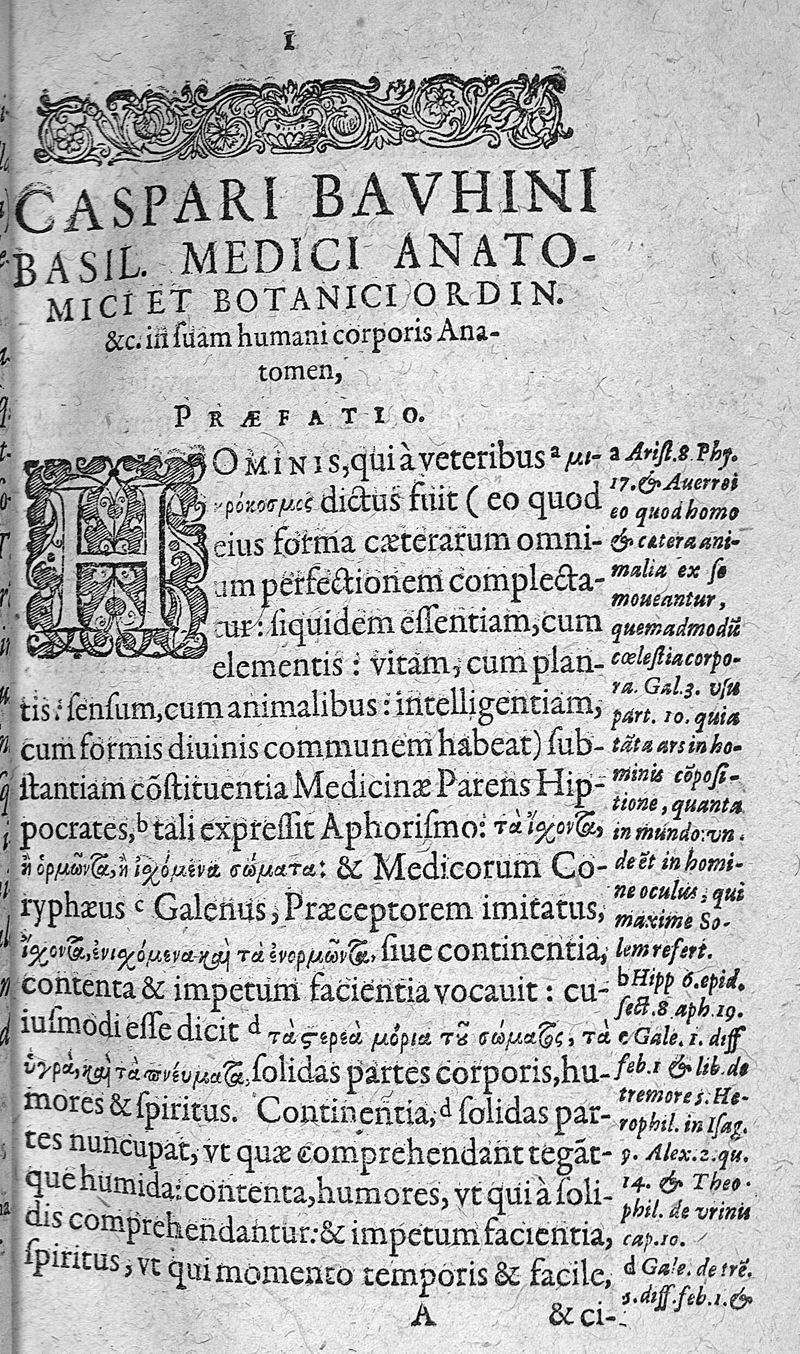 I
CASPARI BAVHINI
BASIL. MEDICI ANATO-
MICI ET BOTANICI ORDIN.
&c. in ſuam humani corporis Ana-
tomen,
PRÆFATIO.
HOMINIS, qui à veteribus ᵃ μι-
κρόκοσμος dictus fuit ( eo quod
eius forma cæterarum omni-
um perfectionem complecta-
tur: ſiquidem eſſentiam, cum
elementis : vitam, cum plan-
tis: ſenſum, cum animalibus: intelligentiam,
cum formis diuinis communem habeat) ſub-
ſtantiam cõſtituentia Medicinæ Parens Hip-
pocrates, ᵇ tali expreſſit Aphoriſmo: τὰ ἴχοντα,
ἢ ὁρμῶντα, ἢ ἰχόμενα σώματα: & Medicorum Co-
ryphæus ᶜ Galenus, Præceptorem imitatus,
ἴχοντα, ἐνιχόμενα καὶ τὰ ἐνορμῶντα, ſiue continentia,
contenta & impetum facientia vocauit : cu-
iuſmodi eſſe dicit ᵈ τὰ στερεὰ μόρια τοῦ σώματος, τὰ
ὑγρὰ, καὶ τὰ πνέυματα, ſolidas partes corporis, hu-
mores & ſpiritus. Continentia, ᵈ ſolidas par-
tes nuncupat, vt quæ comprehendant tegãt-
que humida: contenta, humores, vt qui à ſoli-
dis comprehendantur: & impetum facientia,
ſpiritus, vt qui momento temporis & facile,
A & ci-
a Ariſt. 8. Phyſ.
17. & Auerroi
eo quod homo
& cætera ani-
malia ex ſe
moueantur,
quemadmodũ
cœleſtia corpo-
ra. Gal. 3. vſu
part. 10. quia
tãta ars in ho-
minis cõpoſi-
tione, quanta
in mundo: vn-
de ẽt in homi-
ne oculus, qui
maxime So-
lem refert.
b Hipp 6. epid.
ſect. 8 aph. 19.
c Gale. 1. diff
feb. 1 & lib. de
tremore 5. He-
rophil. in Iſag.
9. Alex. 2. qu.
14. & Theo-
phil. de vrinis
cap. 10.
d Gale. de trē.
5. diff. feb. 1. &